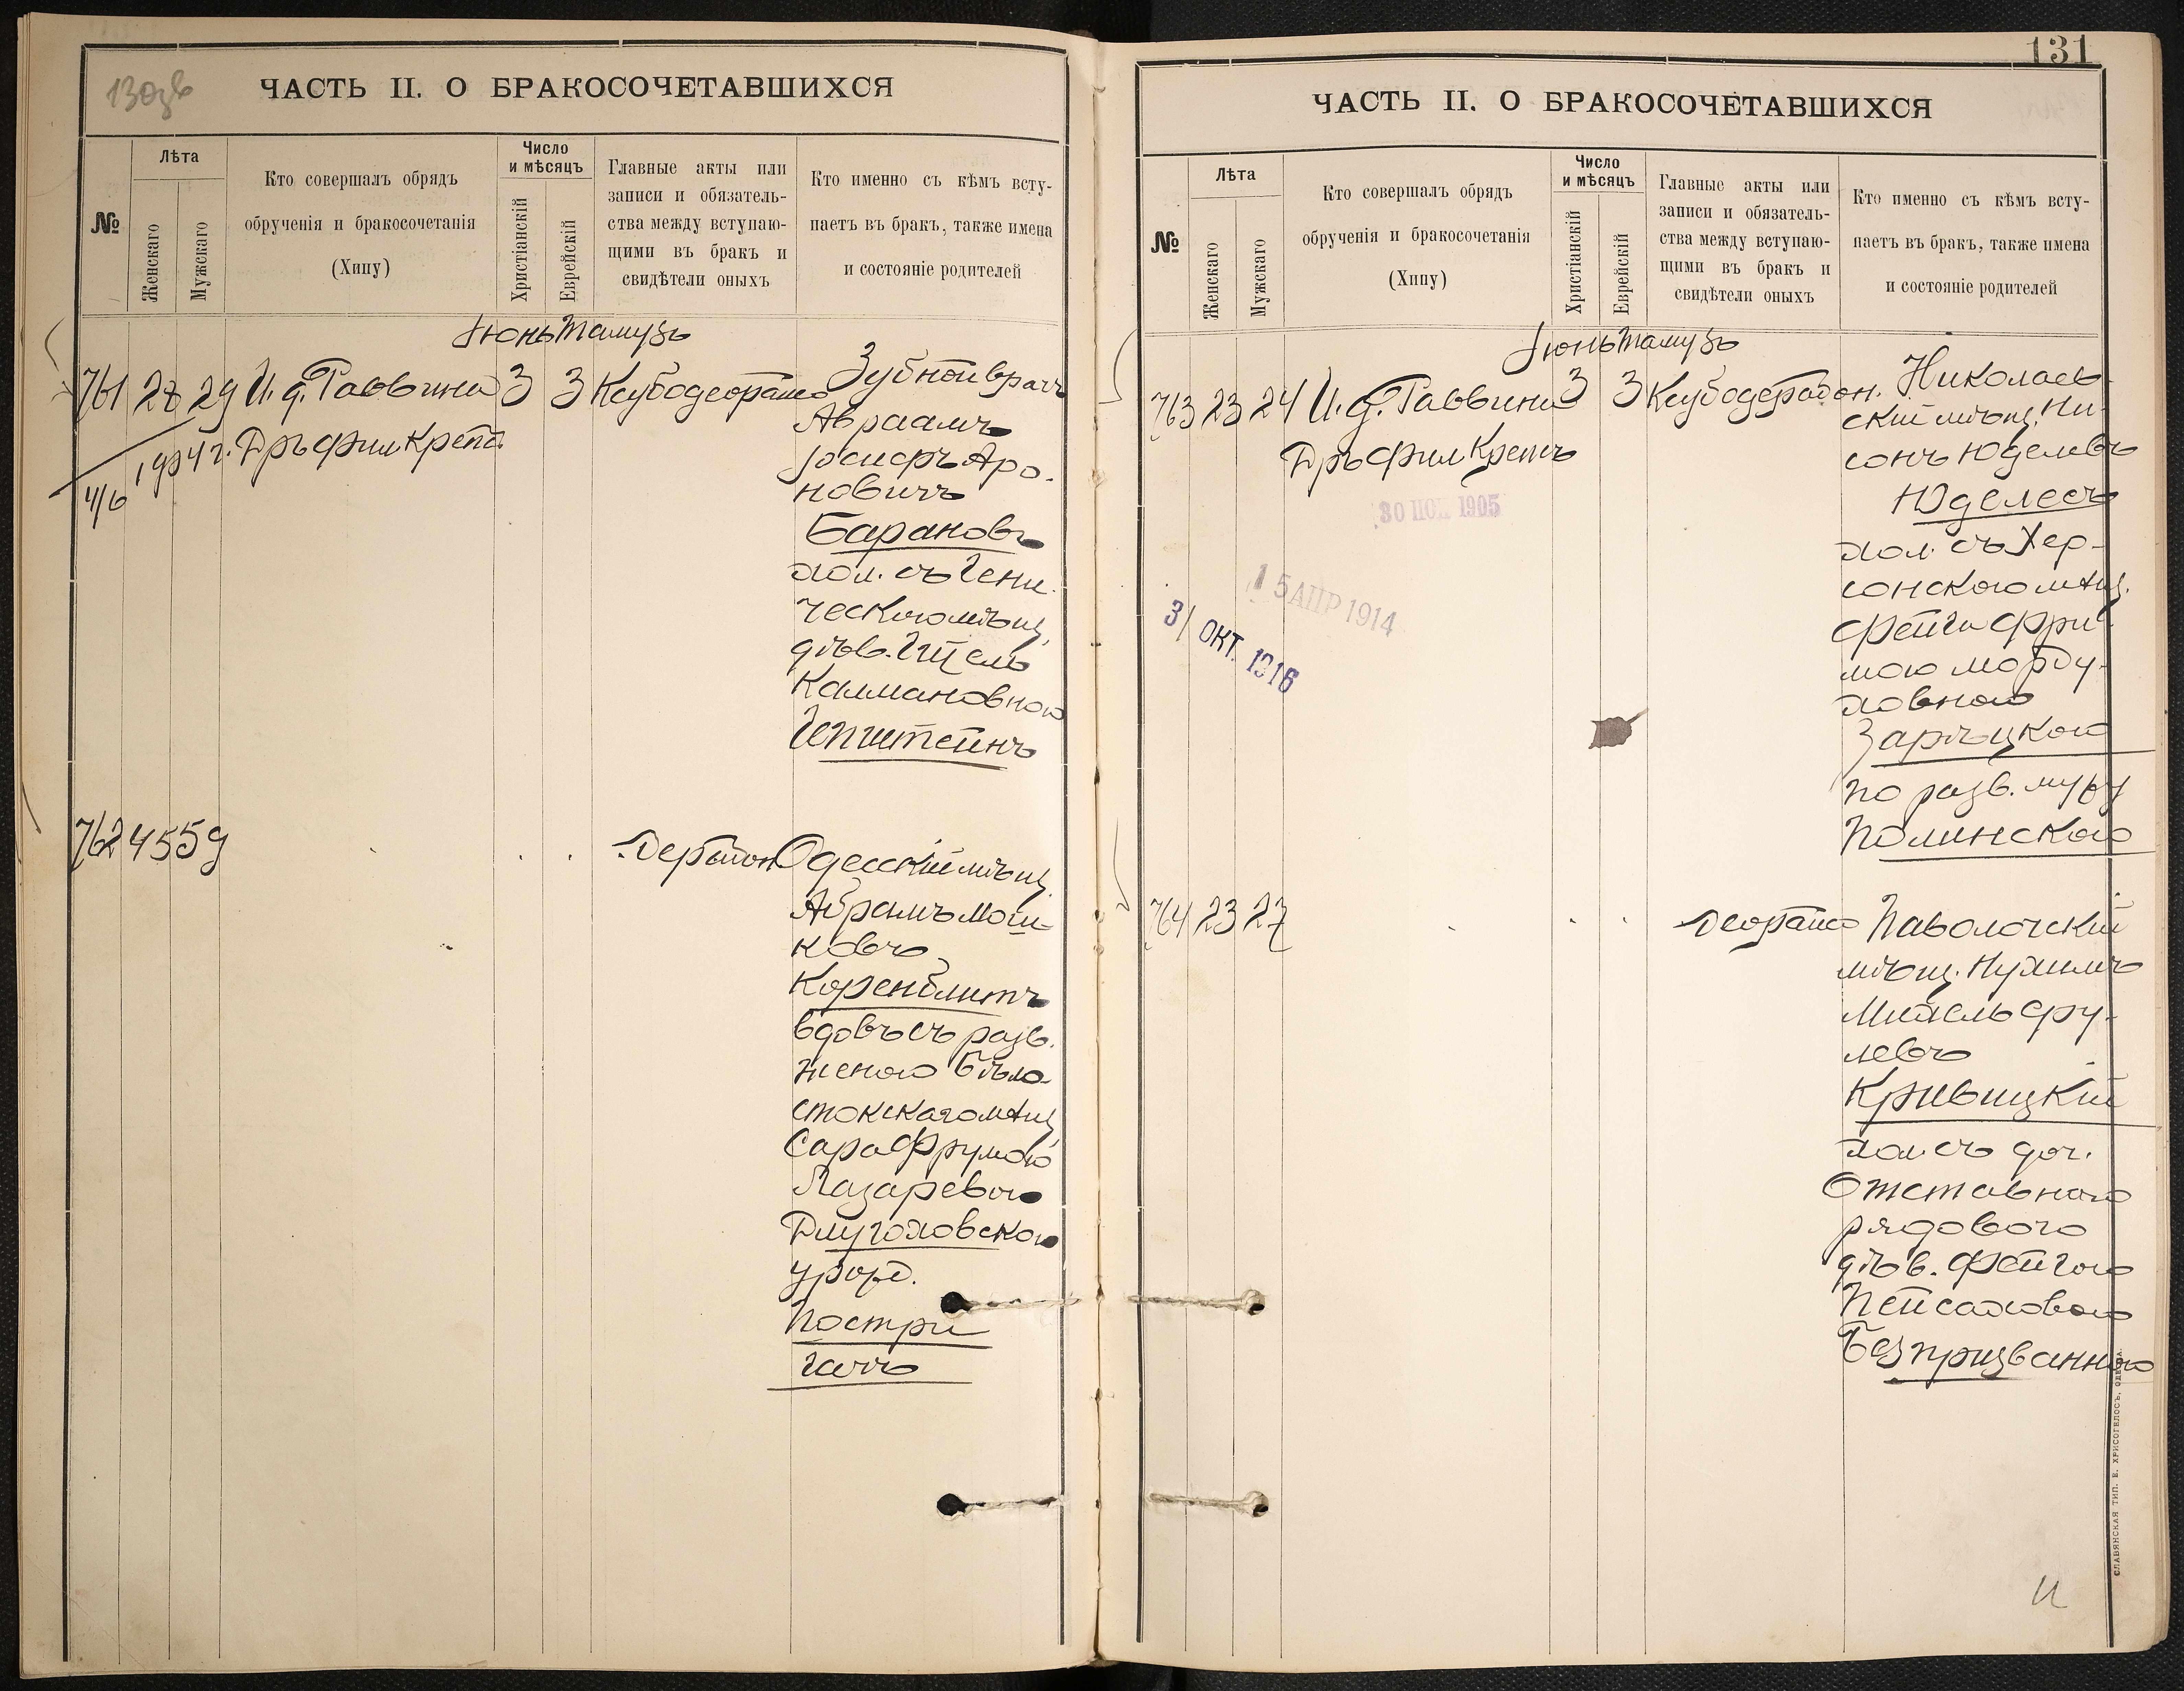 130зв
ЧАСТЬ II. О БРАКОСОЧЕТАВШИХСЯ
№
Лѣта
Женскаго
Мужскаго
Кто совершалъ обрядъ
обрученія и бракосочетанія
(Хипу)
Число
и мѣсяцъ
Христіанскій
Еврейскій
Главные акты или
записи и обязатель-
ства между вступаю-
щими въ бракъ и
свидѣтели оныхъ
Кто именно съ кѣмъ всту-
паетъ въ бракъ, также имена
и состояніе родителей
Іюнь Тамузъ
761 28 29 И. д. Раввина 3 3
4/6 1904 г. Дръ Фил Крепсъ
Зубной врачъ
Авраамъ
Іосифъ Аро-
новичъ
Барановъ
хол. съ Гени-
ческою мѣщ.
дѣв.
Калмановною
Эпштейнъ
762 45 59
Одесскій мѣщ.
Абрамъ Мош-
ковъ
Коренблитъ
вдовъ съ разв.
женою Бѣло-
стокскаго мѣщ.
Сара Фрумою
Лазаревою
Длуголовскою
урожд.
Постри
гачъ
131
ЧАСТЬ II. О БРАКОСОЧЕТАВШИХСЯ
№
Лѣта
Женскаго
Мужскаго
Кто совершалъ обрядъ
обрученія и бракосочетанія
(Хипу)
Число
и мѣсяцъ
Христіанскій
Еврейскій
Главные акты или
записи и обязатель-
ства между вступаю-
щими въ бракъ и
свидѣтели оныхъ
Кто именно съ кѣмъ всту-
паетъ въ бракъ, также имена
и состояніе родителей
Іюнь Тамузъ
763 23 24 И. д. Раввина 3 3
Дръ Фил Крепсъ
30 1905
15 АПР 1914
31 ОКТ. 1916
Николаев-
скій мѣщ. Ни-
сонъ Юделевъ
Юделесъ
хол. съ Хер-
сонскою мѣщ.
Фейга Фри-
мою Морду-
ховною
Зарѣцкою
по разв. мужу
Полинскою
764 23 27
Паволочскій
мѣщ. Нухимъ
Михель Сру-
левъ
Кривицкій
хол. съ доч.
Отставного
рядового
дѣв. Фейгою
Пейсаховою
Безпризванною
СЛАВЯНСКАЯ ТИП. Е. ХРИСОГЕЛОСЪ, ОДЕССА.